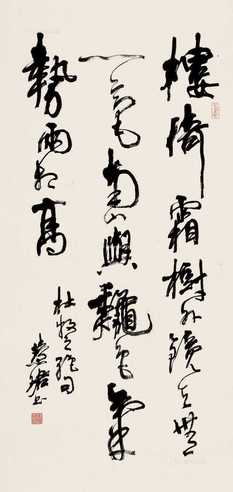 樓倚霜樹外鏡天無
一毫南山與龝色氣
勢兩相高
杜牧之絕句